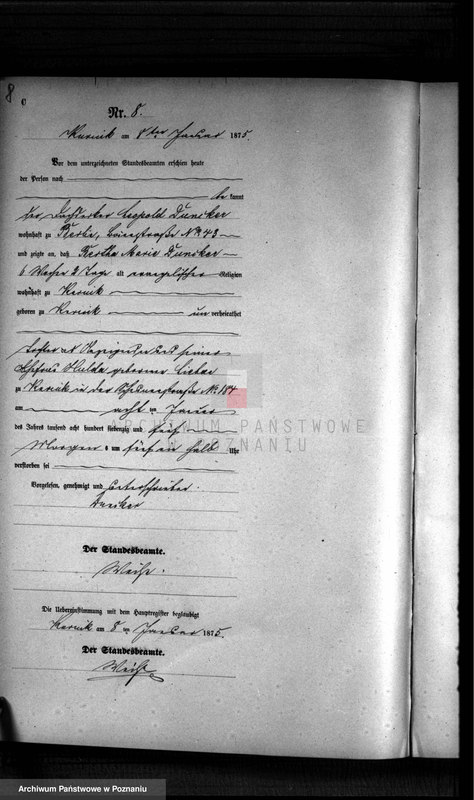 8
Nr. 8.
Kurnik am 8ten Januar 1875.
Vor dem unterzeichneten Standesbeamten erschien heute
der Person nach
be kannt
der Leopold Duncker
wohnhaft zu Berlin, No 43
und zeigte an, daß Bertha Marie Duncker
6 Wochen 2 Tage alt evangelischer Religion
wohnhaft zu Kurnik
geboren zu Kurnik un verheirathet
Tochter des seiner
Ehefrau Hulda geborene
zu Kurnik in der No 184
am acht ten Januar
des Jahres tausend acht hundert siebenzig und fünf
Morgens um fünf ein halb Uhr
verstorben sei
Vorgelesen, genehmigt und unterschrieben.
Duncker
Der Standesbeamte.
Weiße
Die Uebereinstimmung mit dem Hauptregister beglaubigt
Kurnik am 8 ten Januar 1875.
Der Standesbeamte.
Weiße
ARCHIWUM PAŃSTWOWE
W POZNANIU
Archiwum Państwowe w Poznaniu